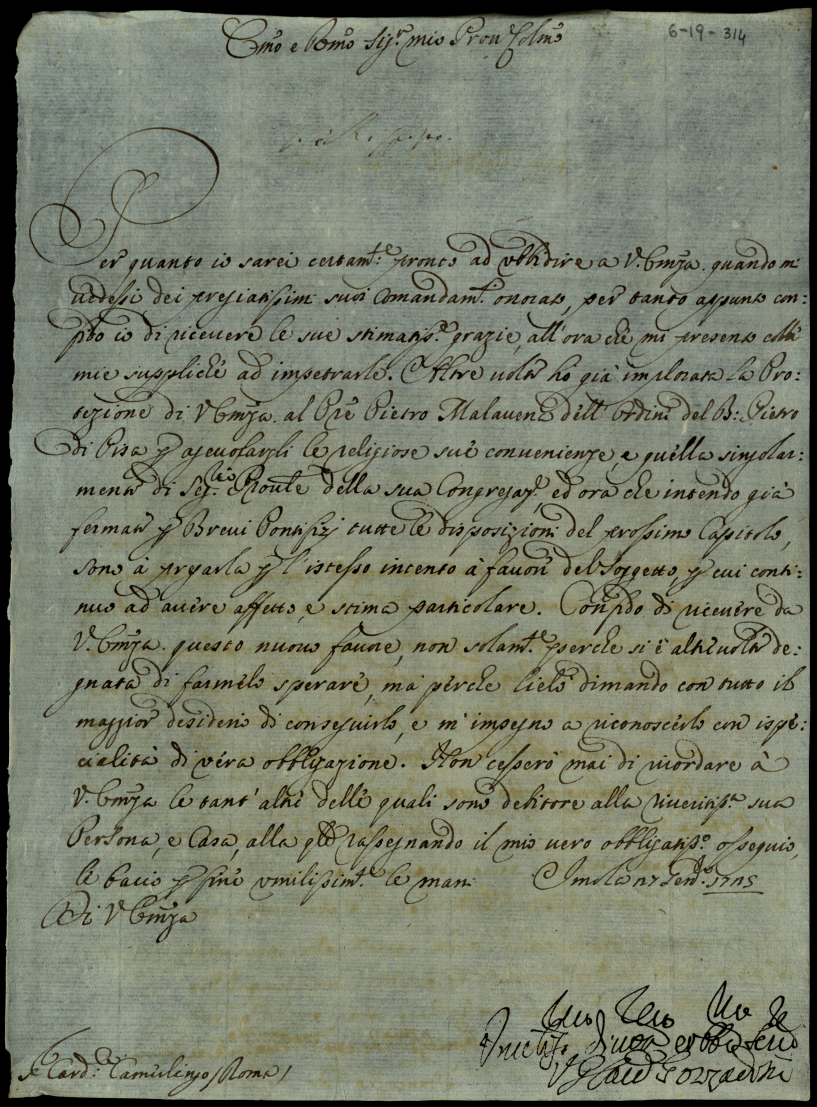 Em̃o e Rm̃o Sig.r mio Pron Colm̃o
6-19-314
Per quanto io sarei certam.te pronto ad ubbidire a V. Em̃za. quando mi
vedessi dei pregiatissimi suoi Comandam.ti onorato, per tanto appunto con-
fido io di ricevere le sue stimatiss.e grazie, all'ora che mi presento colle
mie suppliche ad impetrarle. Altre volte hò già implorata la Pro-
tezione di V. Em̃za. al Prẽ Pietro Malavena dell'Ordine del B: Pietro
di Pisa p̱ agevolargli le religiose sue convenienze, e quella singolar-
mente di della sua Congregaz.e, ed ora che intendo già
fermate p̱ Brevi Pontifizj tutte le disposizioni del prossimo Capitolo,
sono à pregarla p̱ l'istesso intento à favore del Soggetto, p̱ cui conti-
nuo ad avere affetto, e stima particolare. Confido di ricevere da
V. Em̃za. questo nuovo favore, non solam.te perche si è altre volte de-
gnata di farmelo sperare, mà perche lielo dimando con tutto il
maggior desiderio di conseguirlo, e m'impegno a riconoscerlo con ispe-
cialità di vera obbligazione. Non cesserò mai di ricordare à
V. Em̃za le tant'altre delle quali sono debitore alla riveritiss.a sua
Persona, e Casa, alla qle rassegnando il mio vero obbligatiss.o ossequio,
le bacio p̱ fine umilissim.te le mani Imola 27 1725
Di V. Em̃za
Sr Card: Camerlingo / Roma /
Um̃o